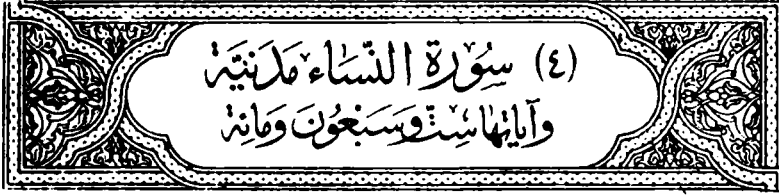 (٤) سُورَة النِّسَاء مَدَنِيَّة
وَآيَاتُهَا سِتٌّ وَسَبْعُونَ وَمَائة